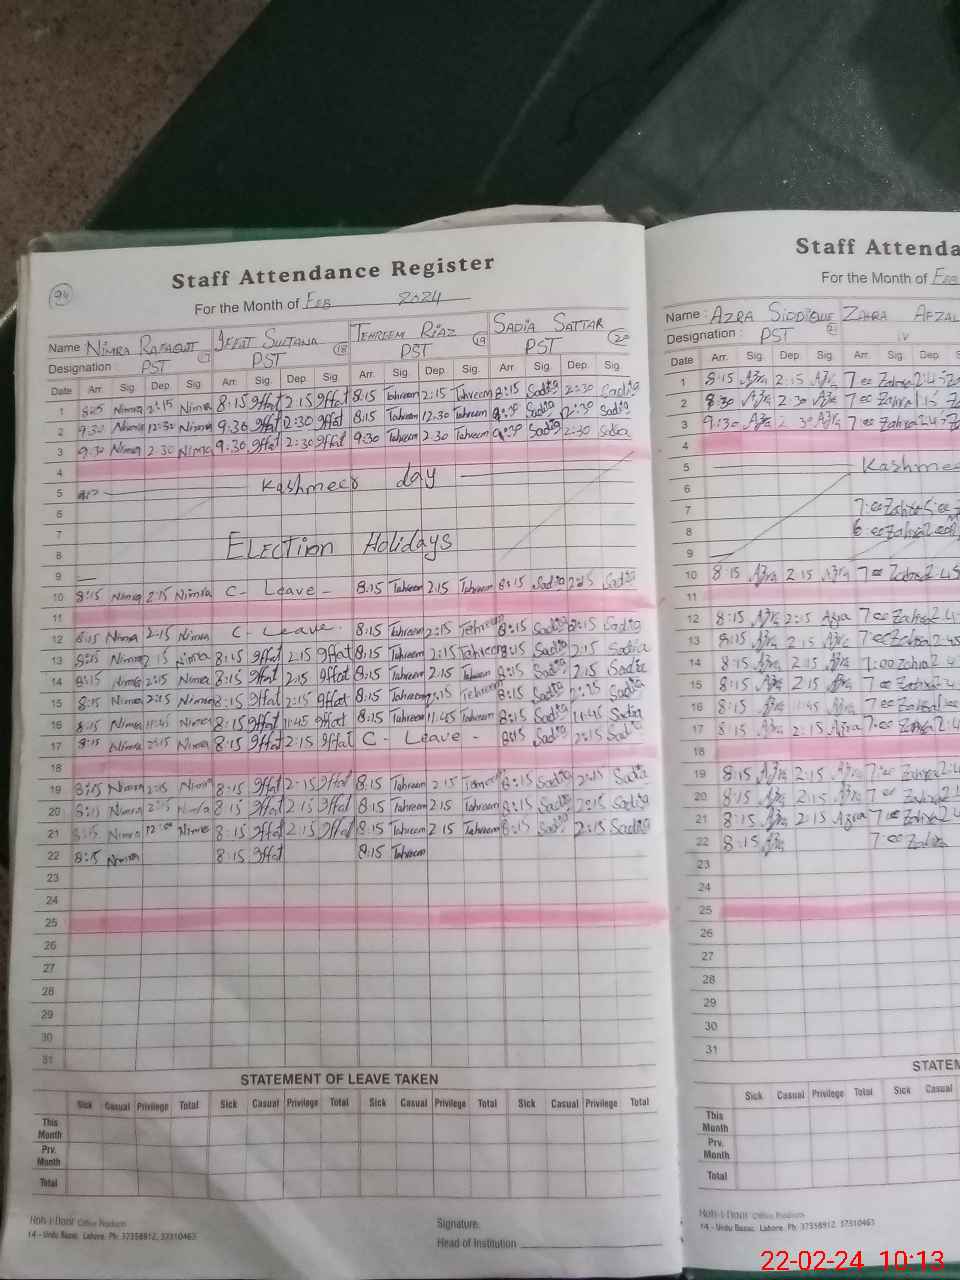 94
Staff Attendance Register
For the Month of Feb 2024
Name NIMRA RAFAQUT IFFAT SULTANA TEHREEM RIAZ SADIA SATTAR
Designation: PST PST 18 PST 19 PST 20
Date Arr. Sig. Dep. Sig. Arr. Sig. Dep. Sig. Arr. Sig. Dep. Sig. Arr. Sig. Dep. Sig.
1 8:15 Nimra 2:15 Nimra 8:15 Iffat 2:15 Iffat 8:15 Tahreem 2:15 Tahreem 8:15 Sadia 2:30 Sadia
2 9:30 Nimra 12:30 Nimra 9:30 Iffat 2:30 Iffat 8:15 Tahreem 12.30 Tahreem 9:30 Sadia 2:30 Sadia
3 9:30 Nimra 2:30 Nimra 9:30 Iffat 2:30 Iffat 9:30 Tahreem 2.30 Tahreem 9:30 Sadia 2:30 Sadia
4
5 Kashmeer day
6
7
8 ELECTION Holidays
9
10 8:15 Nimra 2:15 Nimra C- Leave - 8:15 Tahreem 2.15 Tahreem 8:15 Sadia 2:15 Sadia
11
12 8:15 Nimra 2:15 Nimra C- Leave. 8:15 Tahreem 2:15 Tehreem 8:15 Sadia 2:15 Sadia
13 8:15 Nimra 2:15 Nimra 8:15 Iffat 2:15 Iffat 8:15 Tahreem 2:15 Tahreem 8:15 Sadia 2:15 Sadia
14 8:15 Nimra 2:15 Nimra 8:15 Iffat 2:15 Iffat 8:15 Tahreem 2.15 Tahreem 8:15 Sadia 2.15 Sadia
15 8:15 Nimra 2:15 Nimra 8:15 Iffat 2:15 Iffat 8:15 Tahreem 2:15 Tahreem 8:15 Sadia 2:15 Sadia
16 8:15 Nimra 11:45 Nimra 8:15 Iffat 11:45 Iffat 8:15 Tahreem 11.45 Tahreem 8:15 Sadia 11:45 Sadia
17 8:15 Nimra 2:15 Nimra 8:15 Iffat 2:15 Iffat C - Leave - 8:15 Sadia 2:15 Sadia
18
19 8:15 Nimra 2:15 Nimra 8:15 Iffat 2:15 Iffat 8.15 Tahreem 2.15 8:15 Sadia 2:15 Sadia
20 8:15 Nimra 2:15 Nimra 8:15 Iffat 2:15 Iffat 8:15 Tahreem 2.15 Tahreem 8:15 Sadia 2:15 Sadia
21 8:15 Nimra 12:00 Nimra 8:15 Iffat 2:15 Iffat 8:15 Tahreem 2.15 Tahreem 8:15 Sadia 2:15 Sadia
22 8:15 Nimra 8:15 Iffat 8:15 Tahreem
23
24
25
26
27
28
29
30
31
STATEMENT OF LEAVE TAKEN
Sick Casual Privilege Total Sick Casual Privilege Total Sick Casual Privilege Total Sick Casual Privilege Total
This Month
Prv. Month
Total
Signature.
Head of Institution
Koh-i-Noor Office Products
14 - Urdu Bazar, Lahore. Ph: 37358912, 37310463
Staff Attenda
For the Month of Feb
Name : AZRA SIDDIQUE ZAHRA AFZAL
Designation : PST 21
Date Arr. Sig. Dep. Sig. Arr. Sig. Dep.
1 8:15 Azra 2:15 Azra 7:00 Zahra 2:45
2 8:30 Azra 2:30 Azra 7:00 Zahra
3 9:30 Azra 2:30 Azra 7:00 Zahra 2:45
4
5 Kashmee
6
7 7:00 Zahra
8 6:00 Zahra
9
10 8:15 Azra 2:15 Azra 7:00 Zahra 2:45
11
12 8:15 Azra 2:15 Azra 7:00 Zahra 2:4
13 8:15 Azra 2:15 Azra 7:00 Zahra 2:45
14 8:15 Azra 2:15 Azra 7:00 Zahra 2:4
15 8:15 Azra 2:15 Azra 7:00 Zahra 2:4
16 8:15 Azra 11:45 Azra 7:00 Zahra
17 8:15 Azra 2:15 Azra 7:00 Zahra 2:4
18
19 8:15 Azra 2:15 Azra 7:00 Zahra 2:4
20 8:15 Azra 2:15 Azra 7:00 Zahra 2:4
21 8:15 Azra 2:15 Azra 7:00 Zahra 2:4
22 8:15 Azra 7:00 Zahra
23
24
25
26
27
28
29
30
31
STATEM
Sick Casual Privilege Total Sick Casual
This Month
Prv. Month
Total
Koh-i-Noor Office Products
14 - Urdu Bazar, Lahore. Ph: 37358912, 37310463
22-02-24 10:13